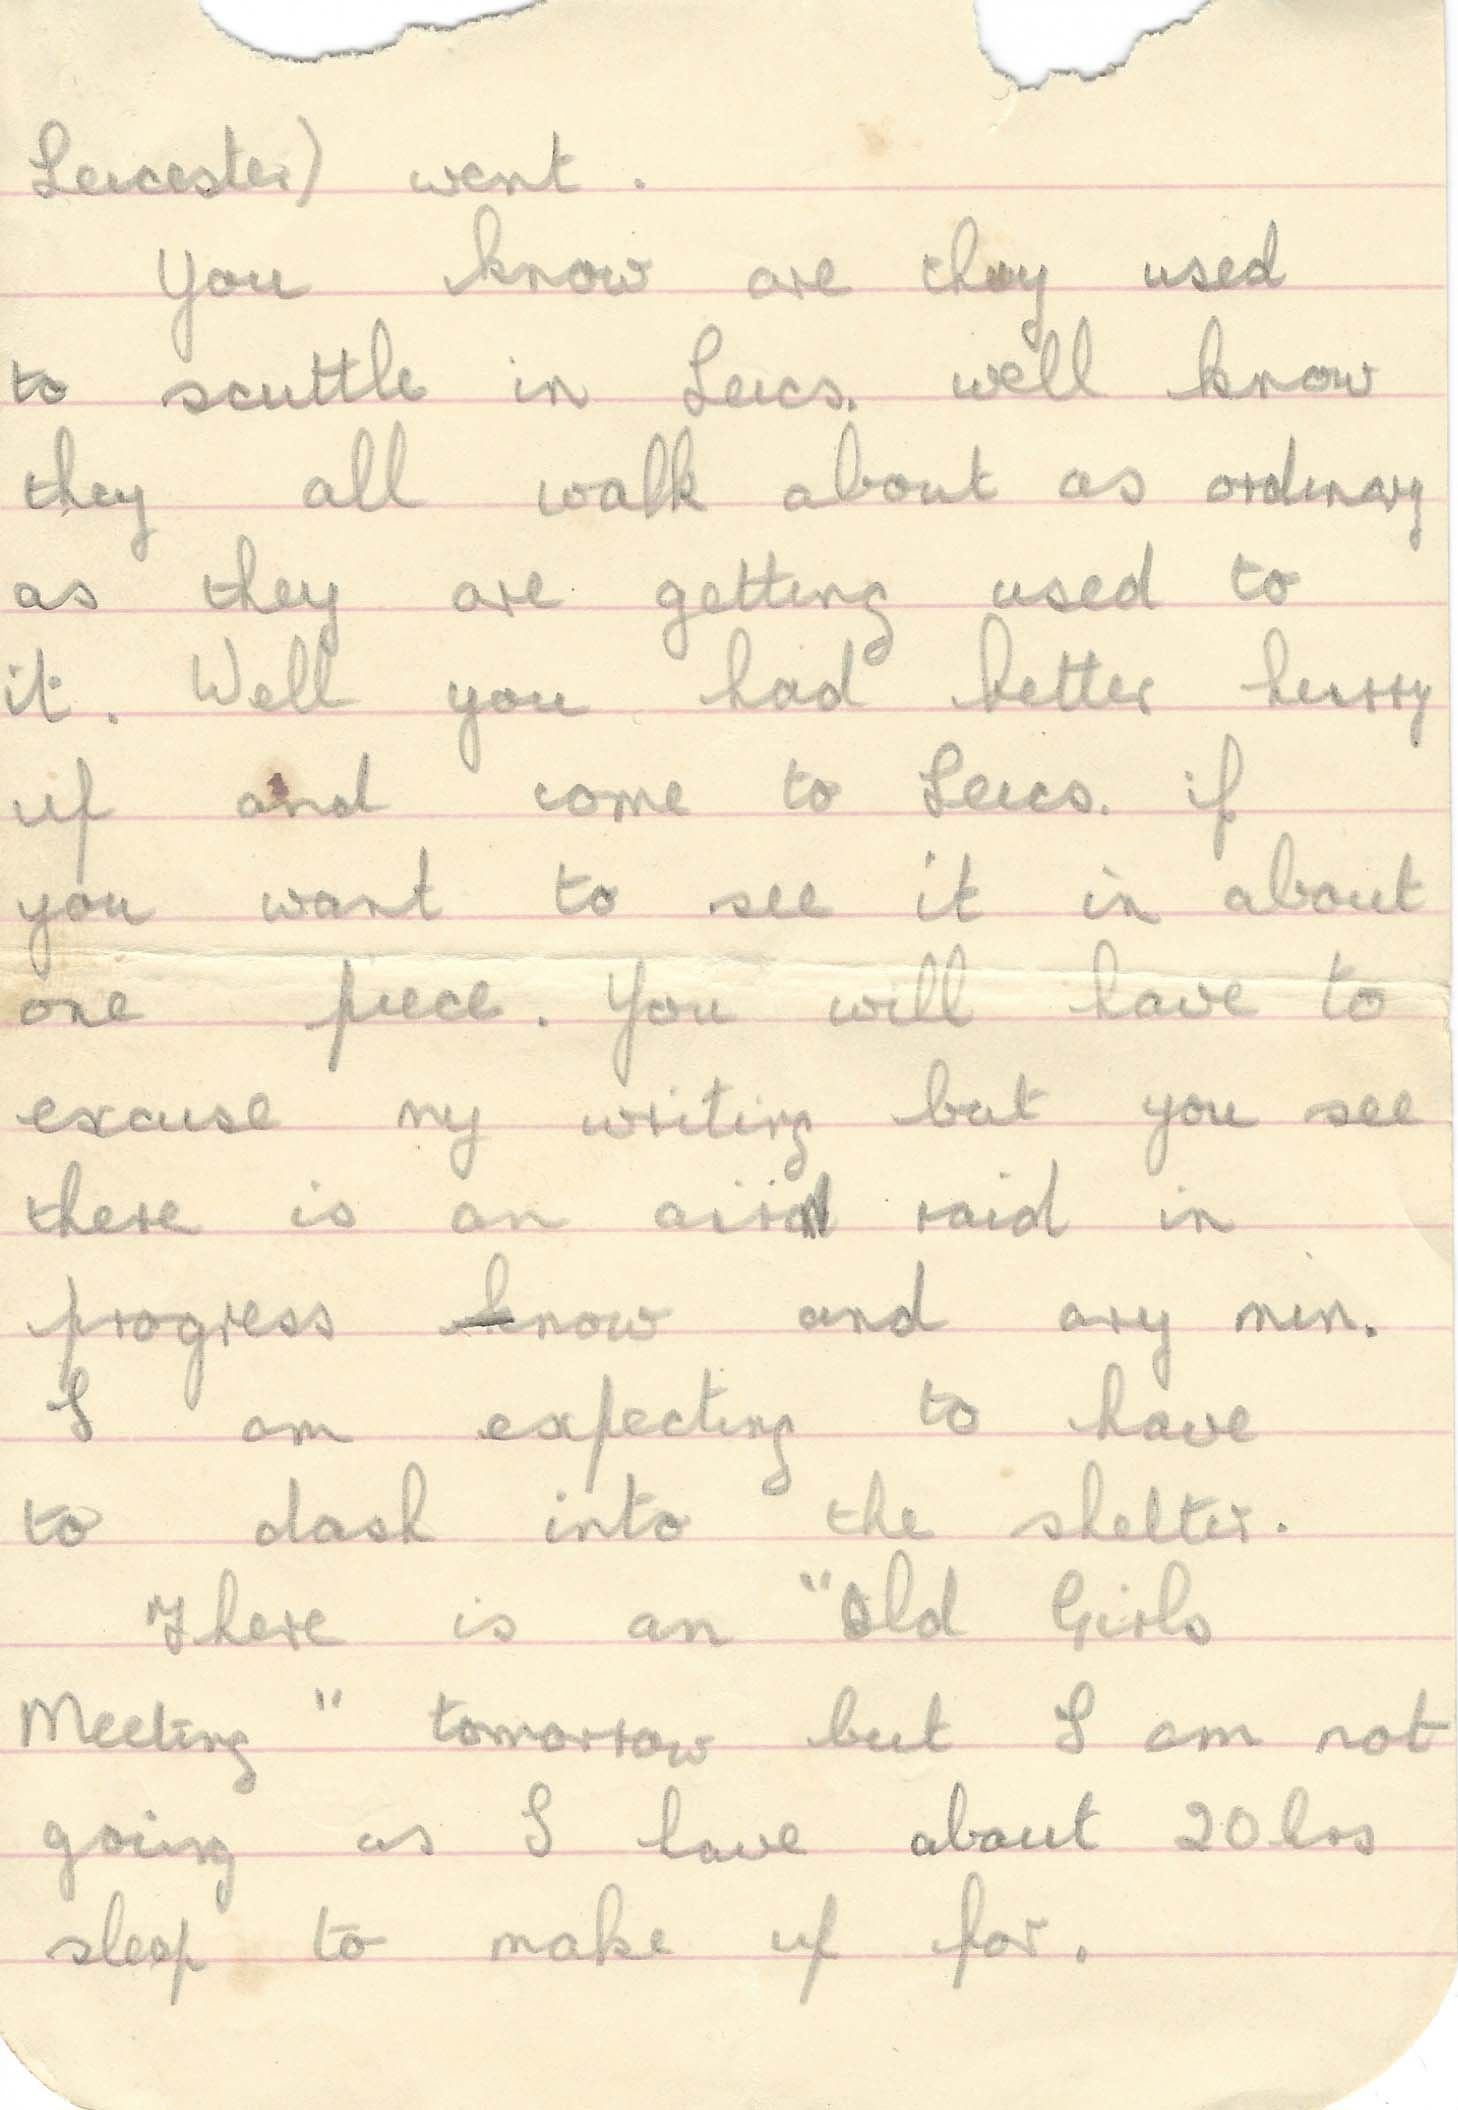 Leicester) went.
You know are they used
to scuttle in Leics. well know
they all walk about as ordinary
as they are getting used to
it. Well you had better hurry
up and come to Leics. if
you want to see it in about
one piece. You will have to
excuse my writing but you see
there is an air raid in
progress know and any min.
I am expecting to have
to dash into the shelter.
There is an "Old Girls
Meeting" tomorrow but I am not
going as I have about 20 hrs
sleep to make up for.